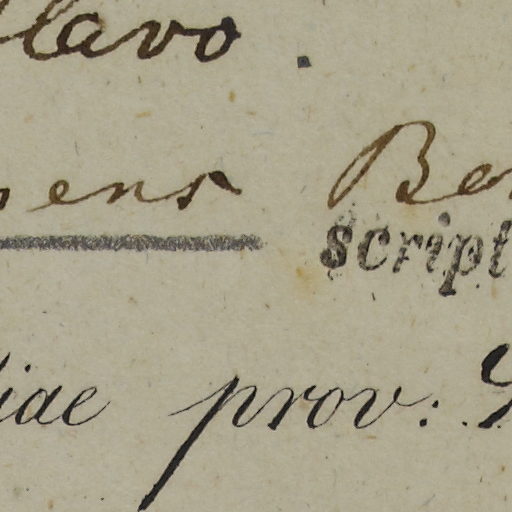 lavo.
ens Be
script
iae prov: